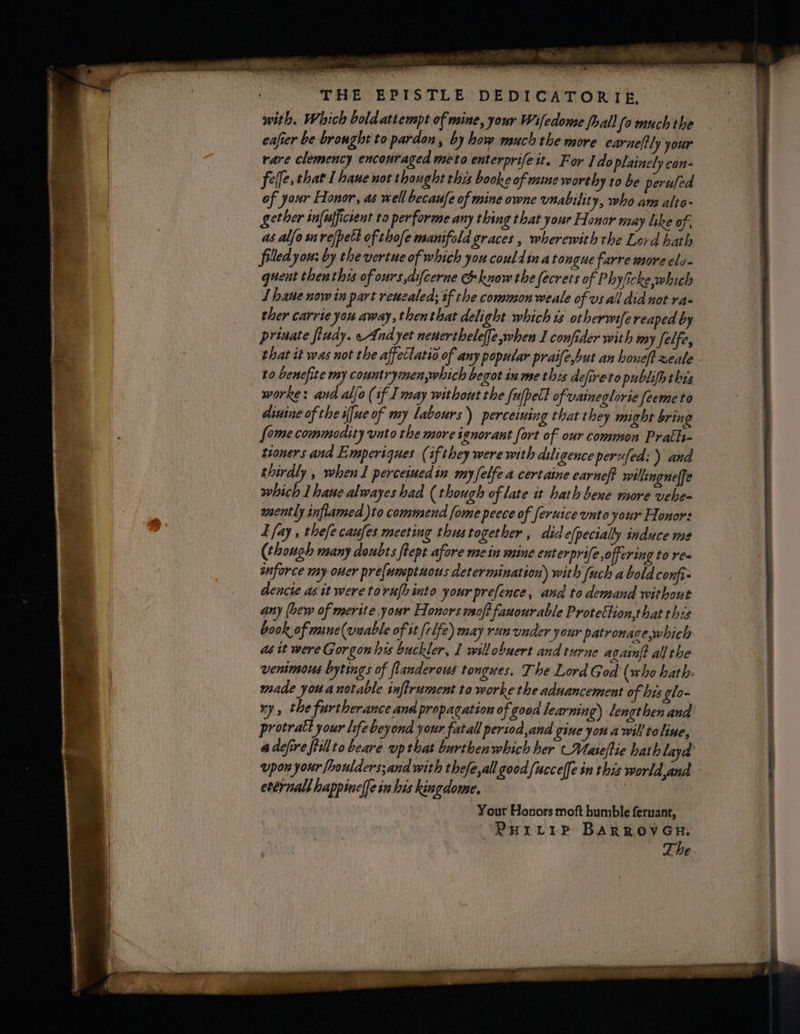 THE EPISTLE DEDICATORIE.
with. Which bold attempt of mine, your Wiſedome ſhall ſo much the
eaſier be brought to pardon, by how much the more earneſtly your
rare clemency encouraged me to enterpriſe it. For I do plainely con-
feſſe, that I haue not thought this booke of mine worthy to be peruſed
of your Honor, as well becauſe of mine owne vnability, who am alto-
gether inſufficient to performe any thing that your Honor may like of,
as alſo in reſpect of thoſe manifold graces, wherewith the Lord hath
filled you: by the vertue of which you could in a tongue farre more elo-
quent then this of ours, diſcerne & know the ſecrets of Phyſicke, which
I haue now in part reuealed; if the common weale of vs all did not ra-
ther carrie you away, then that delight which is otherwiſe reaped by
priuate ſtudy. And yet neuertheleſſe, when I conſider with my ſelfe,
that it was not the affectatiō of any popular praiſe, but an honeſt zeale
to benefite my countrymen, which begot in me this deſire to publiſh this
worke: and alſo (if I may without the ſuſpect of vaineglorie ſeeme to
diuine of the iſſue of my labours) perceiuing that they might bring
ſome commodity vnto the more ignorant ſort of our common Practi-
tioners and Emperiques (if they were with diligence peruſed:) and
thirdly, when I perceiued in my ſelfe a certaine earneſt willingneſſe
which I haue alwayes had (though of late it hath bene more vehe-
mently inflamed) to commend ſome peece of ſeruice vnto your Honor:
I ſay, theſe cauſes meeting thus together, did eſpecially induce me
(though many doubts ſtept afore me in mine enterpriſe, offering to re-
inforce my ouer preſumptuous determination) with ſuch a bold confi-
dencie as it were to ruſh into your preſence, and to demand without
any ſhew of merite your Honors moſt fauourable Protection, that this
book of mine (vnable of it ſelfe) may run vnder your patronage, which
as it were Gorgon his buckler, I will obuert and turne againſt all the
venimous bytings of ſlanderous tongues. The Lord God (who hath
made you a notable inſtrument to worke the aduancement of his glo-
ry, the furtherance and propagation of good learning) lengthen and
protract your life beyond your fatall period, and giue you a will to liue,
a deſire ſtill to beare vp that burthen which her Maieſtie hath layd
vpon your ſhoulders; and with theſe, all good ſucceſſe in this world, and
eternall happineſſe in his kingdome.
Your Honors moſt humble ſeruant,
PHILIP BARROVGH.
The